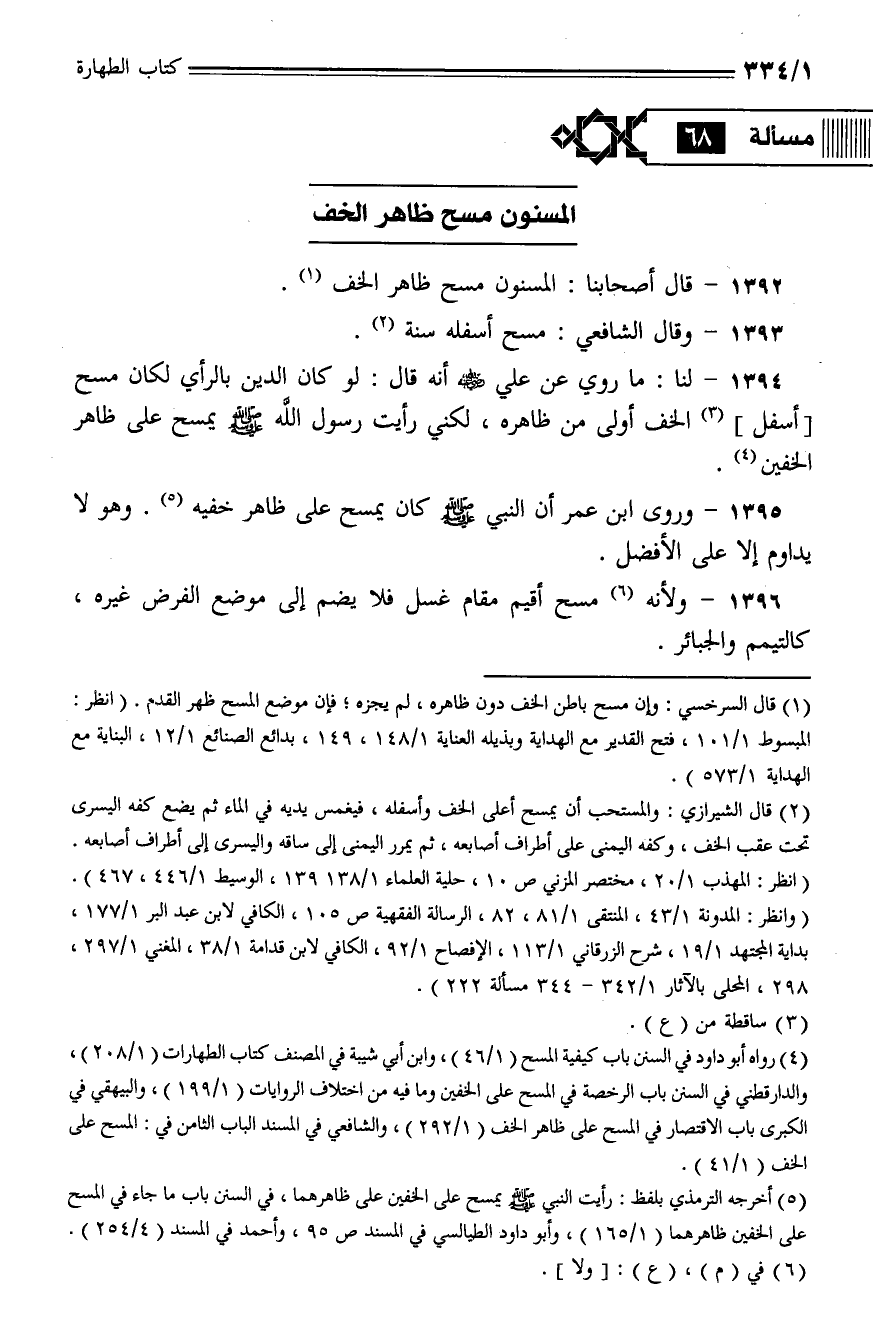 ٣٣٤/١ كتاب الطهارة
مسألة ٦٨
المسنون مسح ظاهر الخف
١٣٩٢ - قال أصحابنا : المسنون مسح ظاهر الخف (١) .
١٣٩٣ - وقال الشافعي : مسح أسفله سنة (٢) .
١٣٩٤ - لنا : ما روي عن علي ﵁ أنه قال : لو كان الدين بالرأي لكان مسح
[ أسفل ] (٣) الخف أولى من ظاهره ، لكني رأيت رسول اللَّه ﷺ يمسح على ظاهر
الخفين (٤) .
١٣٩٥ - وروى ابن عمر أن النبي ﷺ كان يمسح على ظاهر خفيه (٥) . وهو لا
يداوم إلا على الأفضل .
١٣٩٦ - ولأنه (٦) مسح أقيم مقام غسل فلا يضم إلى موضع الفرض غيره ،
كالتيمم والجبائر .
(١) قال السرخسي : وإن مسح باطن الخف دون ظاهره ، لم يجزه ؛ فإن موضع المسح ظهر القدم . ( انظر :
المبسوط ١٠١/١ ، فتح القدير مع الهداية وبذيله العناية ١٤٨/١ ، ١٤٩ ، بدائع الصنائع ١٢/١ ، البناية مع
الهداية ٥٧٣/١ ) .
(٢) قال الشيرازي : والمستحب أن يمسح أعلى الخف وأسفله ، فيغمس يديه في الماء ثم يضع كفه اليسرى
تحت عقب الخف ، وكفه اليمنى على أطراف أصابعه ، ثم يمرر اليمنى إلى ساقه واليسرى إلى أطراف أصابعه .
( انظر : المهذب ٢٠/١ ، مختصر المزني ص ١٠ ، حلية العلماء ١٣٨/١ ١٣٩ ، الوسيط ٤٤٦/١ ، ٤٦٧ ) .
( وانظر : المدونة ٤٣/١ ، المنتقى ٨١/١ ، ٨٢ ، الرسالة الفقهية ص ١٠٥ ، الكافي لابن عبد البر ١٧٧/١ ،
بداية المجتهد ١٩/١ ، شرح الزرقاني ١١٣/١ ، الإفصاح ٩٢/١ ، الكافي لابن قدامة ٣٨/١ ، المغني ٢٩٧/١ ،
٢٩٨ ، المحلى بالآثار ٣٤٢/١ - ٣٤٤ مسألة ٢٢٢ ) .
(٣) ساقطة من ( ع ) .
(٤) رواه أبو داود في السنن باب كيفية المسح ( ٤٦/١ ) ، وابن أبي شيبة في المصنف كتاب الطهارات ( ٢٠٨/١ ) ،
والدارقطني في السنن باب الرخصة في المسح على الخفين وما فيه من اختلاف الروايات ( ١٩٩/١ ) ، والبيهقي في
الكبرى باب الاقتصار في المسح على ظاهر الخف ( ٢٩٢/١ ) ، والشافعي في المسند الباب الثامن في : المسح على
الخف ( ٤١/١ ) .
(٥) أخرجه الترمذي بلفظ : رأيت النبي ﷺ يمسح على الخفين على ظاهرهما ، في السنن باب ما جاء في المسح
على الخفين ظاهرهما ( ١٦٥/١ ) ، وأبو داود الطيالسي في المسند ص ٩٥ ، وأحمد في المسند ( ٢٥٤/٤ ) .
(٦) في ( م ) ، ( ع ) : [ ولا ] .